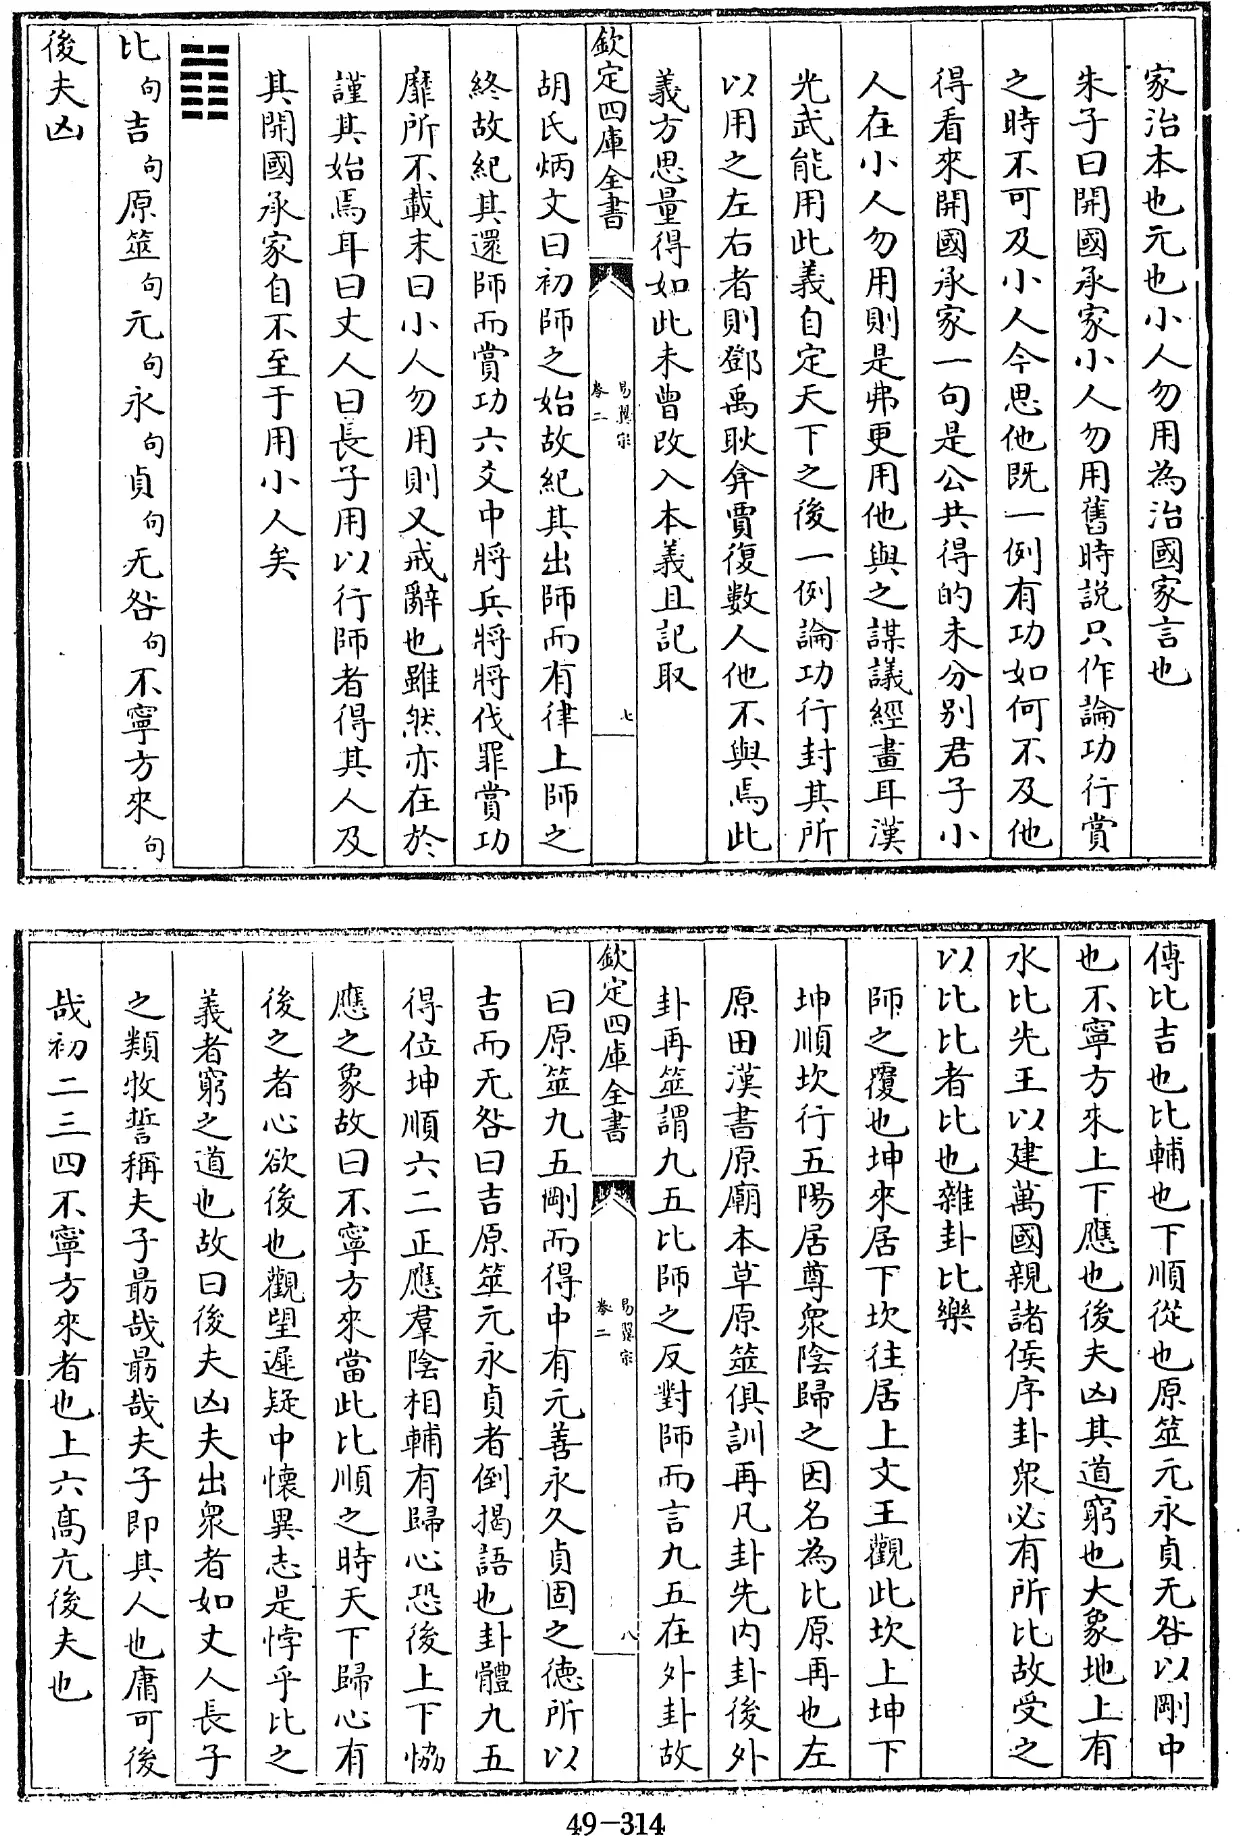 家治本也元也小人勿用為治國家言也
朱子曰開國承家小人勿用舊時説只作論功行賞
之時不可及小人今思他既一例有功如何不及他
得看來開國承家一句是公共得的未分别君子小
人在小人勿用則是弗更用他與之謀議經畫耳漢
光武能用此義自定天下之後一例論功行封其所
以用之左右者則鄧禹耿弇賈復數人他不與焉此
義方思量得如此未曾改入本義且記取
欽定四庫全書
易翼宗
卷二
七
胡氏炳文曰初師之始故紀其出師而有律上師之
終故紀其還師而賞功六爻中將兵將將伐罪賞功
靡所不載末曰小人勿用則又戒辭也雖然亦在於
謹其始焉耳曰丈人曰長子用以行師者得其人及
其開國承家自不至于用小人矣
比句吉句原筮句元句永句貞句无咎句不寧方來句
後夫凶
傳比吉也比輔也下順從也原筮元永貞无咎以剛中
也不寧方來上下應也後夫凶其道窮也大象地上有
水比先王以建萬國親諸侯序卦衆必有所比故受之
以比比者比也雜卦比樂
師之覆也坤來居下坎往居上文王觀此坎上坤下
坤順坎行五陽居尊衆陰歸之因名為比原再也左
原田漢書原廟本草原筮俱訓再凡卦先内卦後外
卦再筮謂九五比師之反對師而言九五在外卦故
欽定四庫全書
易翼宗
卷二
八
曰原筮九五剛而得中有元善永久貞固之德所以
吉而无咎曰吉原筮元永貞者倒揭語也卦體九五
得位坤順六二正應羣陰相輔有歸心恐後上下恊
應之象故曰不寧方來當此比順之時天下歸心有
後之者心欲後也觀望遲疑中懷異志是悖乎比之
義者窮之道也故曰後夫凶夫出衆者如丈人長子
之類牧誓稱夫子勗哉勗哉夫子即其人也庸可後
哉初二三四不寧方來者也上六髙亢後夫也
49-314